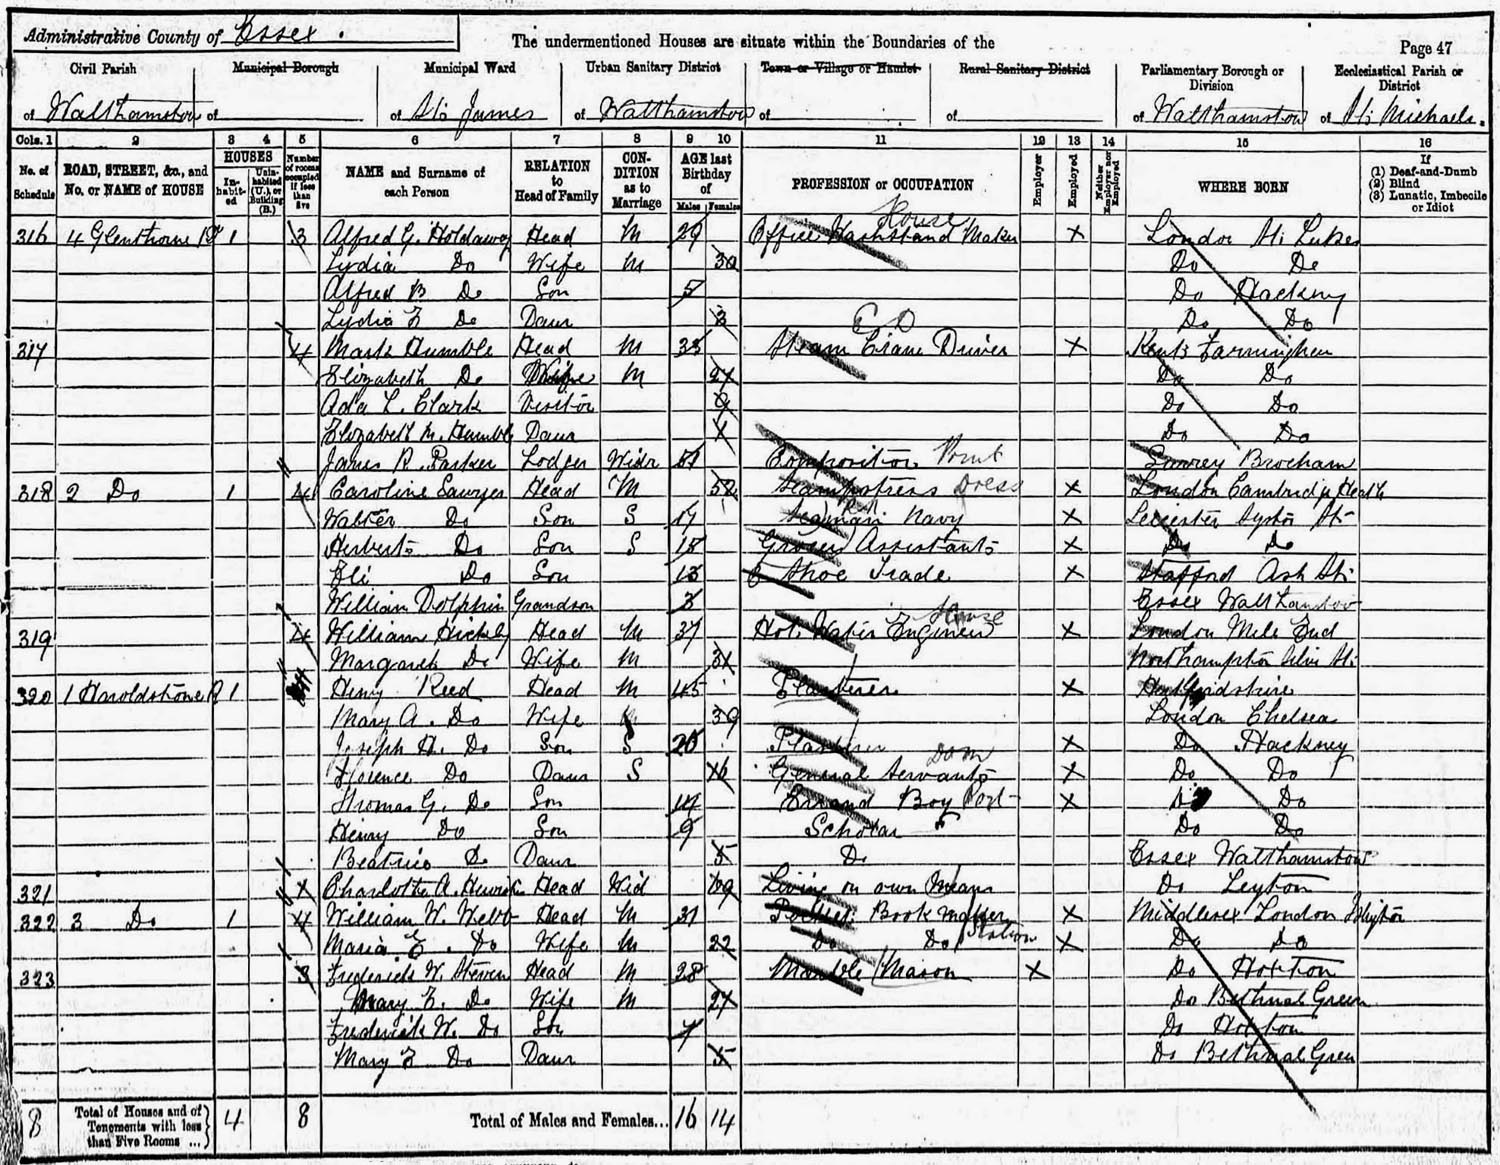 Administrative County of Essex.
The undermentioned Houses are situate within the Boundaries of the
Page 47
Civil Parish Municipal Borough Municipal Ward Urban Sanitary District Town or Village or Hamlet Rural Sanitary District Parliamentary Borough or Division Ecclesiastical Parish or District
of Walthamstow of of St. James of Walthamstow of of of Walthamstow of St. Michaels.
Cols. 1 2 3 4 5 6 7 8 9 10 11 12 13 14 15 16
No. of Schedule ROAD, STREET, &c., and No. or NAME of HOUSE HOUSES Inhabited Uninhabited (U.), or Building (B.) Number of rooms occupied if less than five NAME and Surname of each Person RELATION to Head of Family CONDITION as to Marriage AGE last Birthday of Males Females PROFESSION or OCCUPATION Employer Employed Neither Employer nor Employed WHERE BORN If (1) Deaf-and-Dumb (2) Blind (3) Lunatic, Imbecile or Idiot
House
316 4 Glenthorne Rd 1 3 Alfred G. Holdaway Head M 29 Office Washstand Maker X London St. Lukes
Lydia Do Wife M 30 Do Do
Alfred B Do Son 5 Do Hackney
Lydia E Do Daur 3 Do Do
317 4 Mark Humble Head M 33 Steam Crane Driver X Kent Farningham
Elizabeth Do Wife M 27 Do Do
Ada L. Clark Visitor 9 Do Do
Elizabeth M. Humble Daur Do Do
James R. Parker Lodger Widr Compositor Print Surrey Brocham
318 2 Do 1 4 Caroline Sawyer Head M 52 Seampstress Dress X London Cambridge Heath
Walter Do Son S 17 Seaman Navy X Leicester Syston St
Herbert Do Son S 15 Grocers Assistant X Do Do
Eli Do Son 13 Shoe Trade X Stafford Ash St.
William Dolphin Grandson 3 Essex Walthamstow
House
319 4 William Hickly Head M 37 Hot Water Engineer X London Mile End
Margaret Do Wife M 31 Northampton
320 1 Haroldstone R 1 Henry Reed Head M 45 Plasterer X Hertfordshire
Mary A. Do Wife 39 London Chelsea
Joseph H. Do Son S 20 Plasterer X Do Hackney
Florence Do Daur S 16 General Servant Dom X Do Do
Thomas G. Do Son 14 Errand Boy Port X Do Do
Henry Do Son 9 Scholar Do Do
Beatrice Do Daur 5 Do Essex Walthamstow
321 Charlotte A. Head Wid 69 Living on own Means Do Leyton
322 3 Do 1 4 William W. Webb Head M 31 Pocket Book Maker X Middlesex London Islington
Maria E. Do Wife M 22 Do Do Station X Do Do
323 3 Frederick W. Steven Head M 28 Marble Mason X Do Hoxton
Mary E. Do Wife M 27 Do Bethnal Green
Frederick W. Do Son 7 Do Hoxton
Mary E Do Daur 5 Do Bethnal Green
8 Total of Houses and of Tenements with less than Five Rooms ... 4 8 Total of Males and Females... 16 14